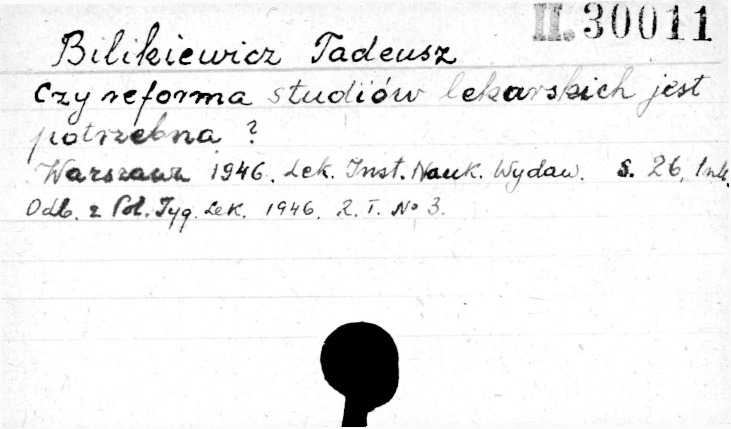 II. 30011
Bilikiewicz Tadeusz
Czy reforma studiów lekarskich jest
potrzebna ?
Warszawa 1946. Lek. Inst. Nauk. Wydaw. s. 26,
Odb. z Pol. Tyg. Lek. 1946. R. I. No 3.